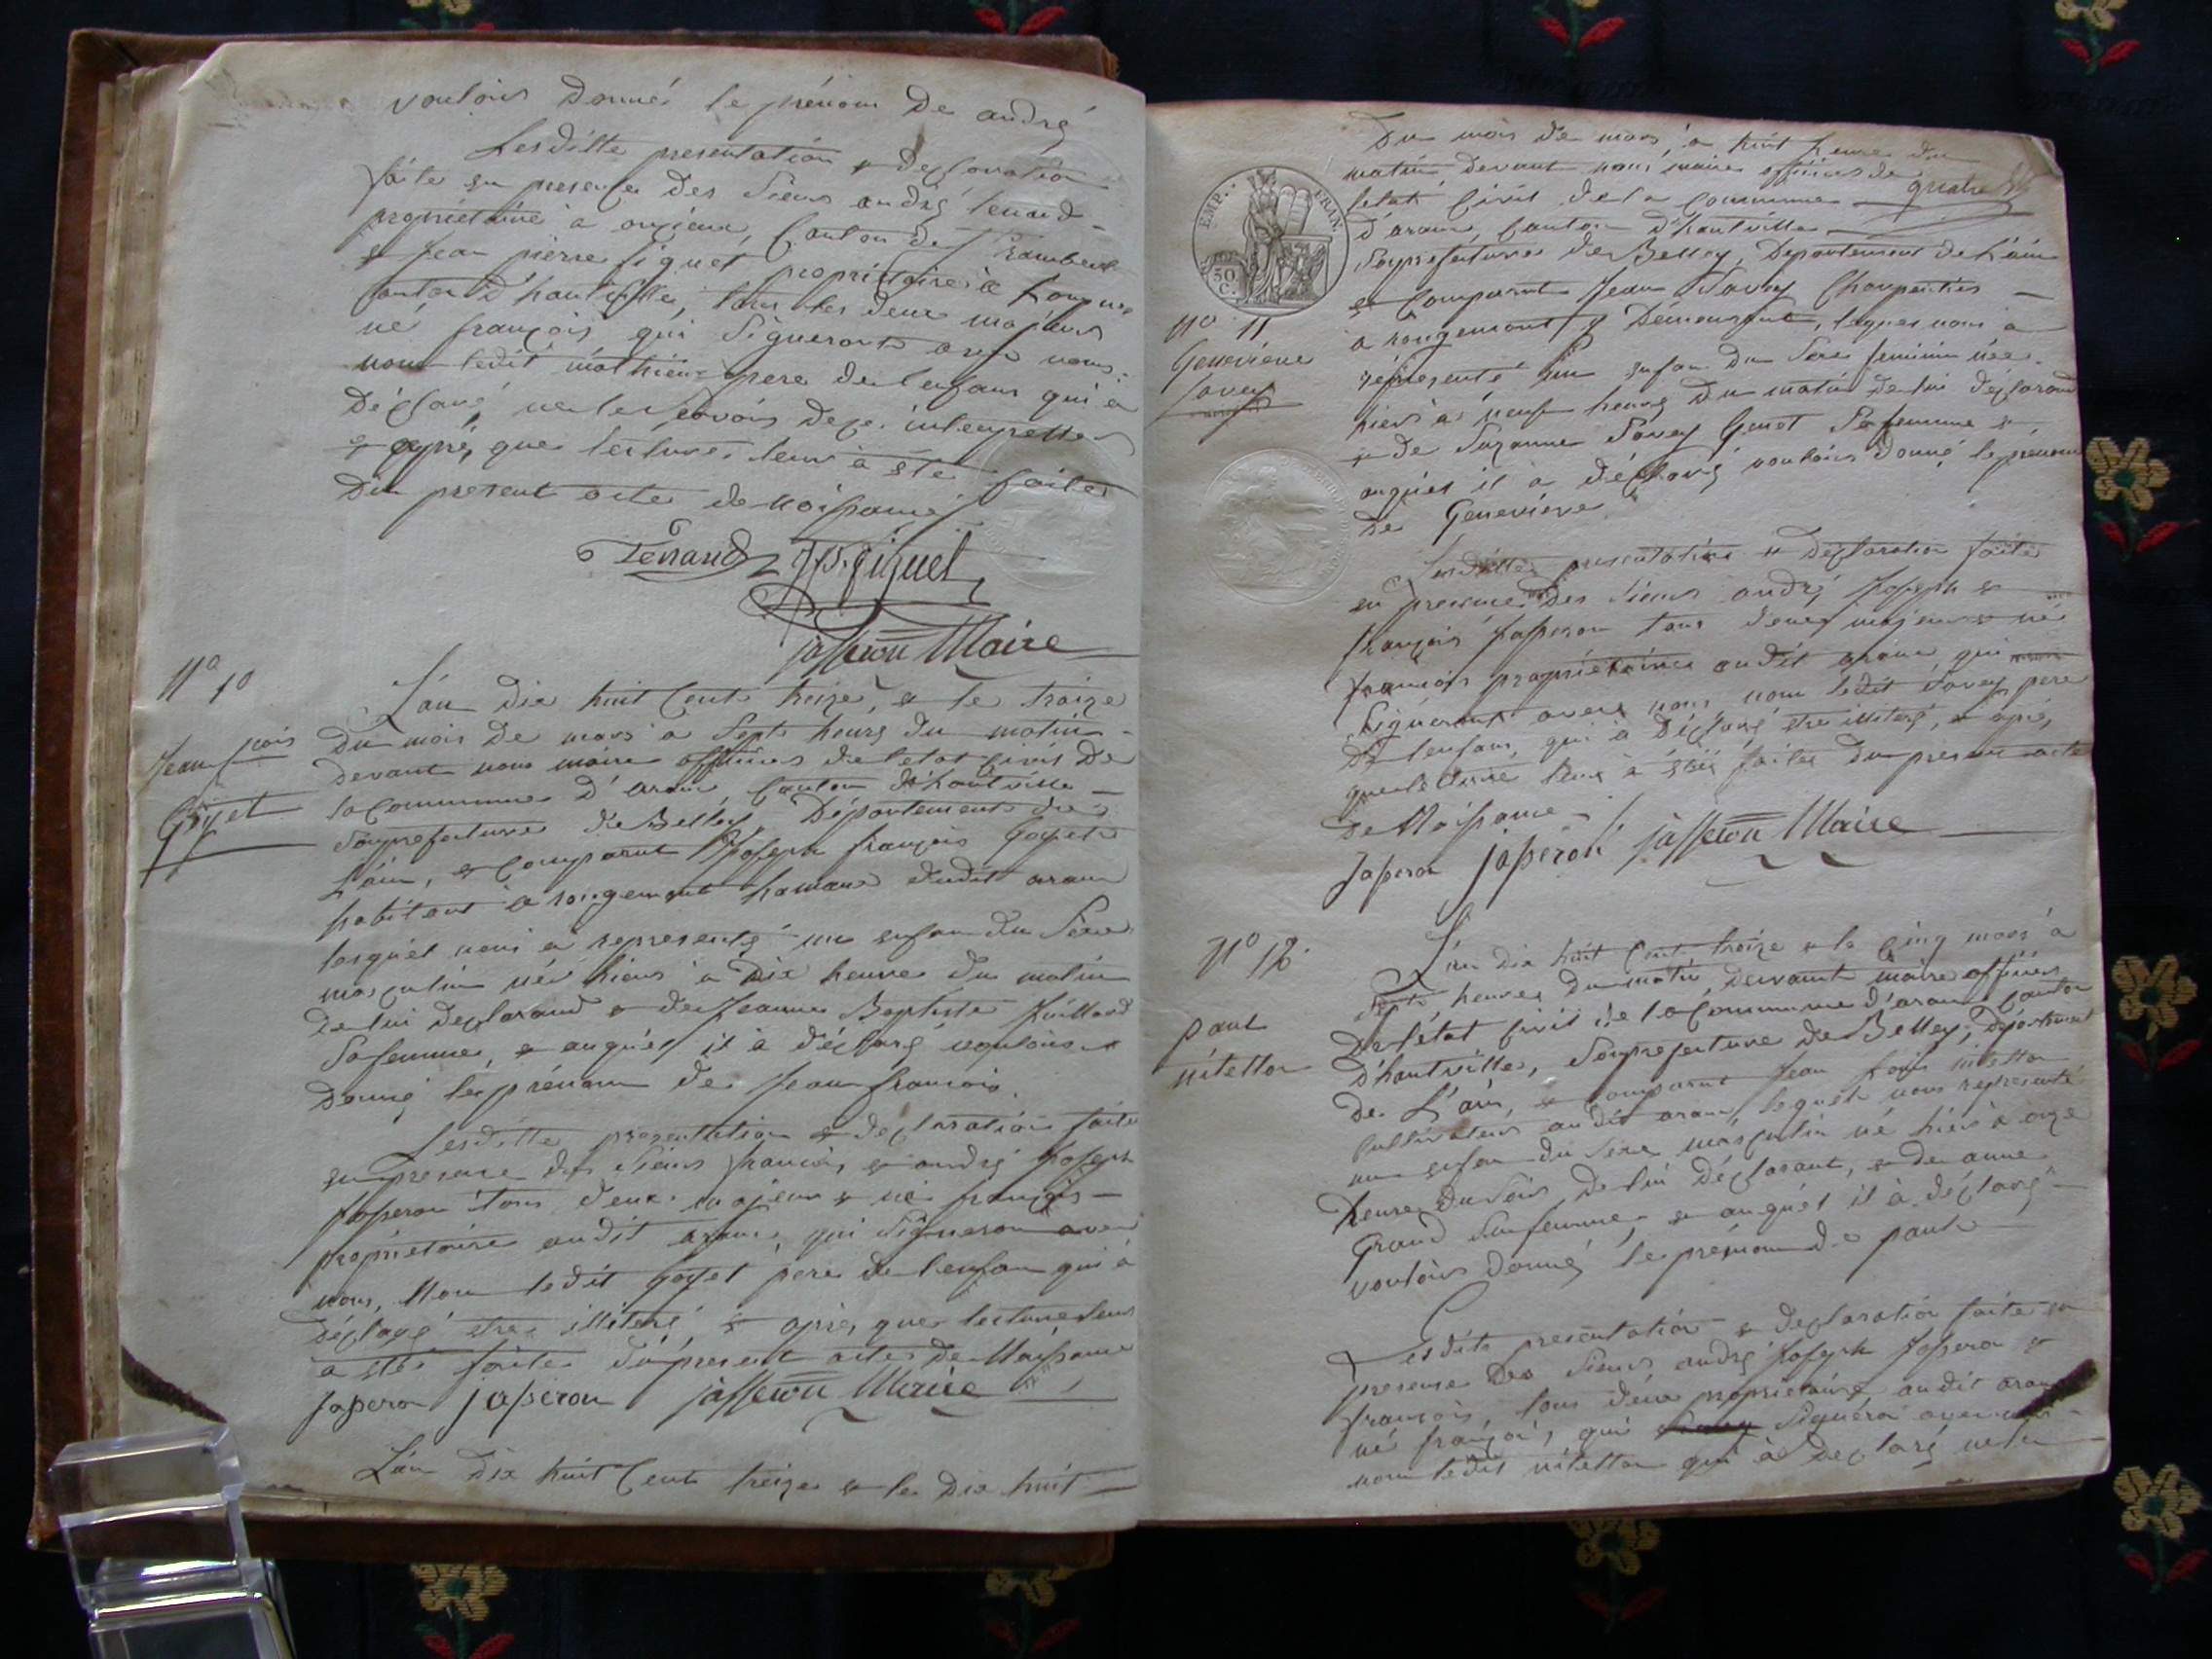 vouloir donné le prénom de andré
Lesditte presentation & declaration
faite en presence des sieurs andré tenand
propriétaire à oncieux, Canton de St Rambert
& Jean pierre figuet propriétaire à
Canton d'hautville, tous les deux majeurs
né françois qui signeront avec nous
non ledit mathieu pere de lenfant qui a
déclaré ne le savoir de ce interpellé
& après que lecture leur a été faite
du present acte de Naissance
Tenand JP. figuet
jasseron Maire
N° 10
Jean fçois
Goyet
L'an dix huit cent treize, & le treize
du mois de mars a sept heures du matin
devant nous maire officier de letat civil de
la commune d'aranc, canton d'hautville
souprefecture de Belley, Département de
L'ain, & comparut Joseph françois Goyet
habitant à rougemont hameau dudit aranc
lequel nous a representé un enfant du sexe
masculin né hier à dix heure du matin
de lui déclarand & de Jeanne Baptiste Juillard
sa femme, & auquel il à déclaré vouloir
donné le prénom de Jean françois.
Lesditte presentation & declaration faite
en presence des sieurs francois & andré Joseph
Jasseron tous deux majeur & né françois
propriétaire audit aranc, qui signeron avec
nous, Non ledit Goyet pere de l'enfan qui à
déclaré etre illiteré, & après que lecture leur
a été faite du present acte de Naissance
Jasseron jasseron jasseron Maire
L'an dix huit cent treize & le dix huit
EMP.. FRAN.
50 C.
quatre
du mois de mars, a huit heure du
matin devant nous maire officier de
letat civil de la commune
d'aranc, canton d'hautville
souprefecture de Belley, Departement de L'ain
& comparut Jean Savey Charpentier
a rougemont y demeurant, lequel nous a
représenté un enfan du sexe feminin née
hier à neuf heures du matin de lui déclarand
& de Suzanne Savey Genot sa femme &
auquel il a déclaré vouloir donné le prénom
de Genevieve
N° 11
Genevieve
Savey
Lesdittes presentation & déclaration faite
en presence des sieurs andré Joseph &
françois Jasseron tous deux majeur & né
françois propriétaire audit aranc qui
signeront avec nous non ledit Savey pere
de lenfan, qui à déclaré etre illiteré, & après
que lecture leur à été faites du present acte
de Naissance
Jasseron jasseron jasseron Maire
N° 12.
paul
nitellon
L'an dix huit cent treize & le cinq mars à
heures du matin, devant maire officier
de l'état civil de la Commune d'aranc canton
d'hautville, souprefecture de Belley, Départment
de L'ain, & comparut Jean nitellon
Cultivateur audit aranc, lequel nous representé
un enfan du sexe masculin né hier à onze
heure du soir, de lui déclarant, & de anne
Grand sa femme & auquel il à déclaré
vouloir donné le prénom de paul
Lesdite presentation & declaration faite en
presence des sieurs andré Joseph Jasseron &
francois, tous deux proprietaire audit aranc
né françois, qui signeron avec nous
non ledit nitellon qui à déclaré ne le